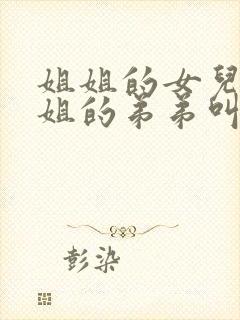 姐姐的女兒
姐的弟弟叫
彭染